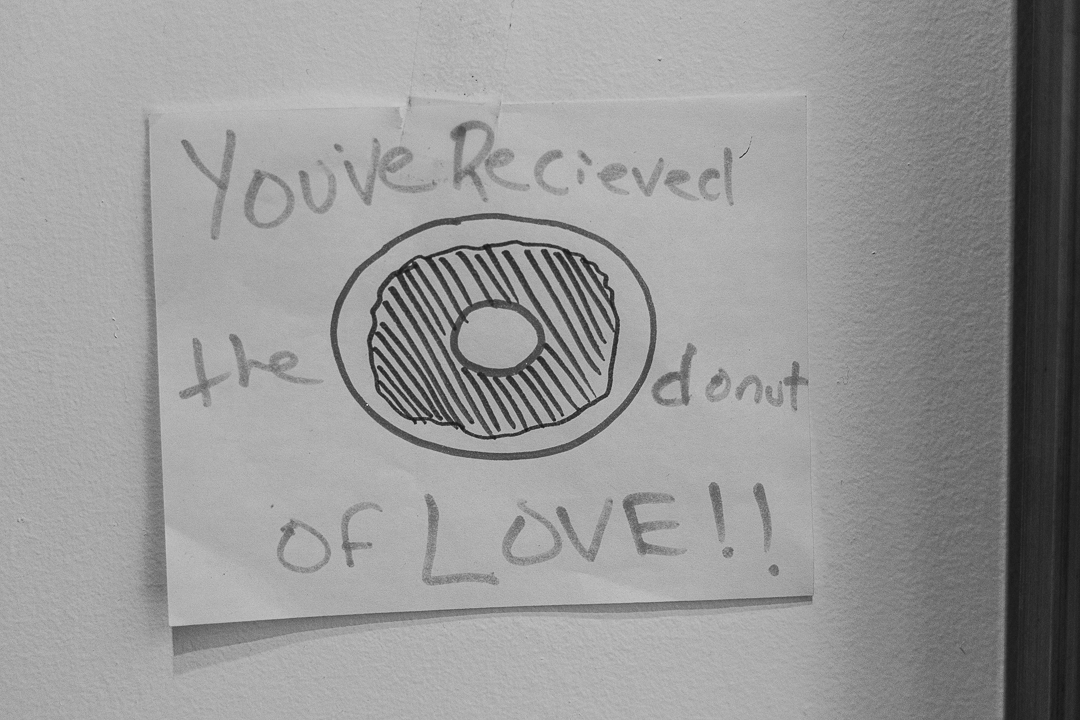 You've Recieved
the donut
OF LOVE!!